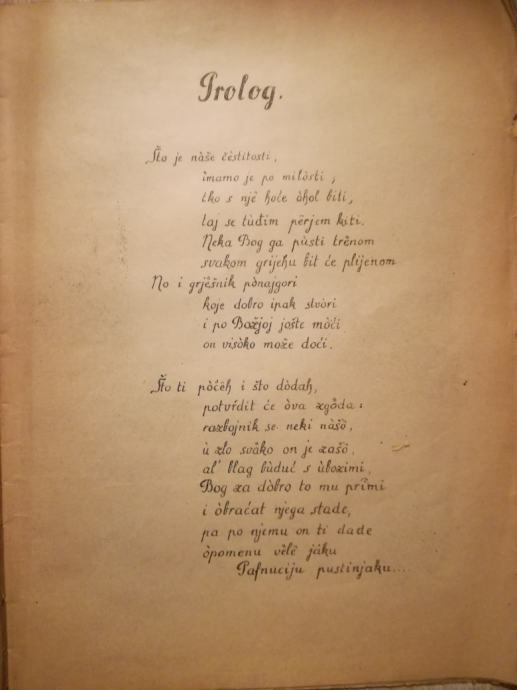 Prolog.
Što je nàše čèstitosti,
imamo je po milòsti,
tko s njê hoće òhol biti,
taj se tuđim pèrjem kiti.
Neka Bog ga pùsti trênom
svakom grijehu bit će plijenom
No i grjêšnik pònajgori
koje dobro ipak stvòri
i po Božjoj jošte mòći
on visòko može doći.
Što ti pòčêh i što dòdah,
potvŕdit će òva zgòda:
razbojnik se neki nàšô,
ù zlo svàko on je zašô,
al' blag bùduć s ùbozimi,
Bog za dòbro to mu prîmi
i òbraćat njega stade,
pa po njemu on ti dade
òpomenu vèlê jáku
Pafnuciju pustinjaku....